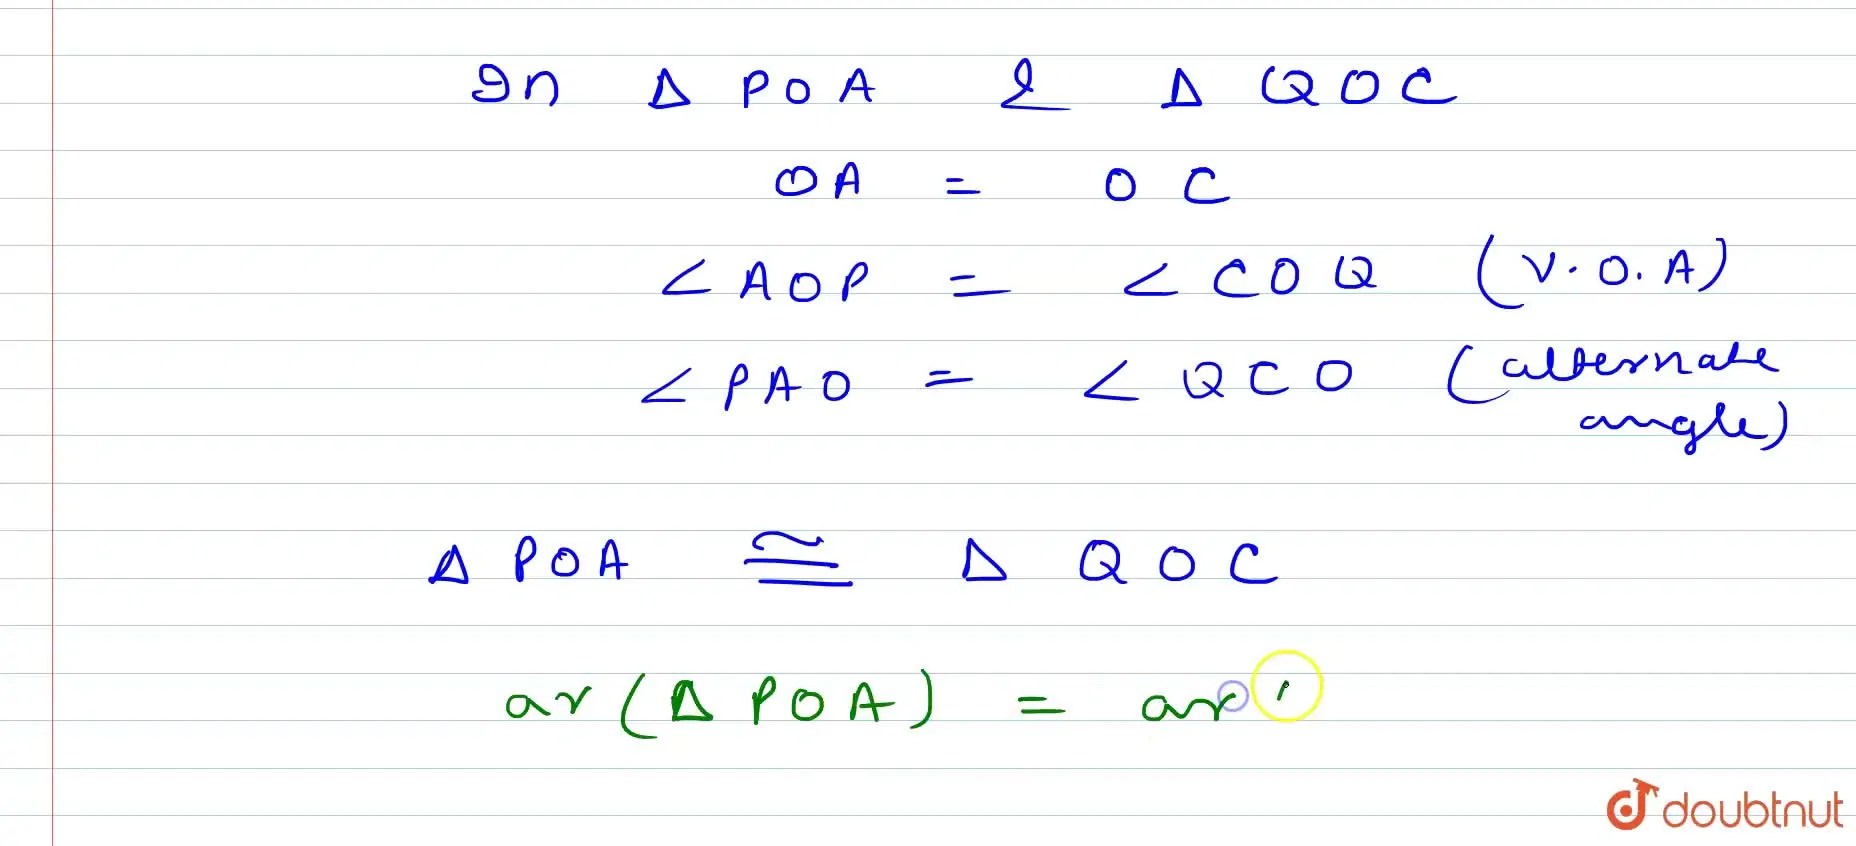 In Δ POA & Δ QOC
OA = OC
∠AOP = ∠COQ (V.O.A)
∠PAO = ∠QCO (alternate
angle)
Δ POA ≅ Δ QOC
ar (Δ POA) = ar
doubtnut